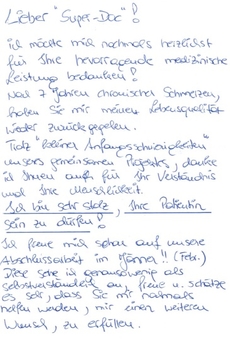 Lieber "Super-Doc"!
ich möchte mich nochmals herzlichst
für Ihre hervorragende medizinische
Leistung bedanken!
Nach 7 Jahren chronischer Schmerzen,
haben Sie mir meine Lebensqualität
wieder zurückgegeben.
Trotz "kleiner Anfangsschwierigkeiten"
unseres gemeinsamen Projektes, danke
ich Ihnen auch für Ihr Verständnis
und Ihre Menschlichkeit.
Ich bin sehr stolz, Ihre Patientin
sein zu dürfen!
Ich freue mich schon auf unsere
Abschlussarbeit im Jänner!! (Febr.)
Diese sehe ich genausowenig als
selbstverständlich an, freue u. schätze
es sehr, dass Sie mir nochmals
helfen werden, mir einen weiteren
Wunsch, zu erfüllen.